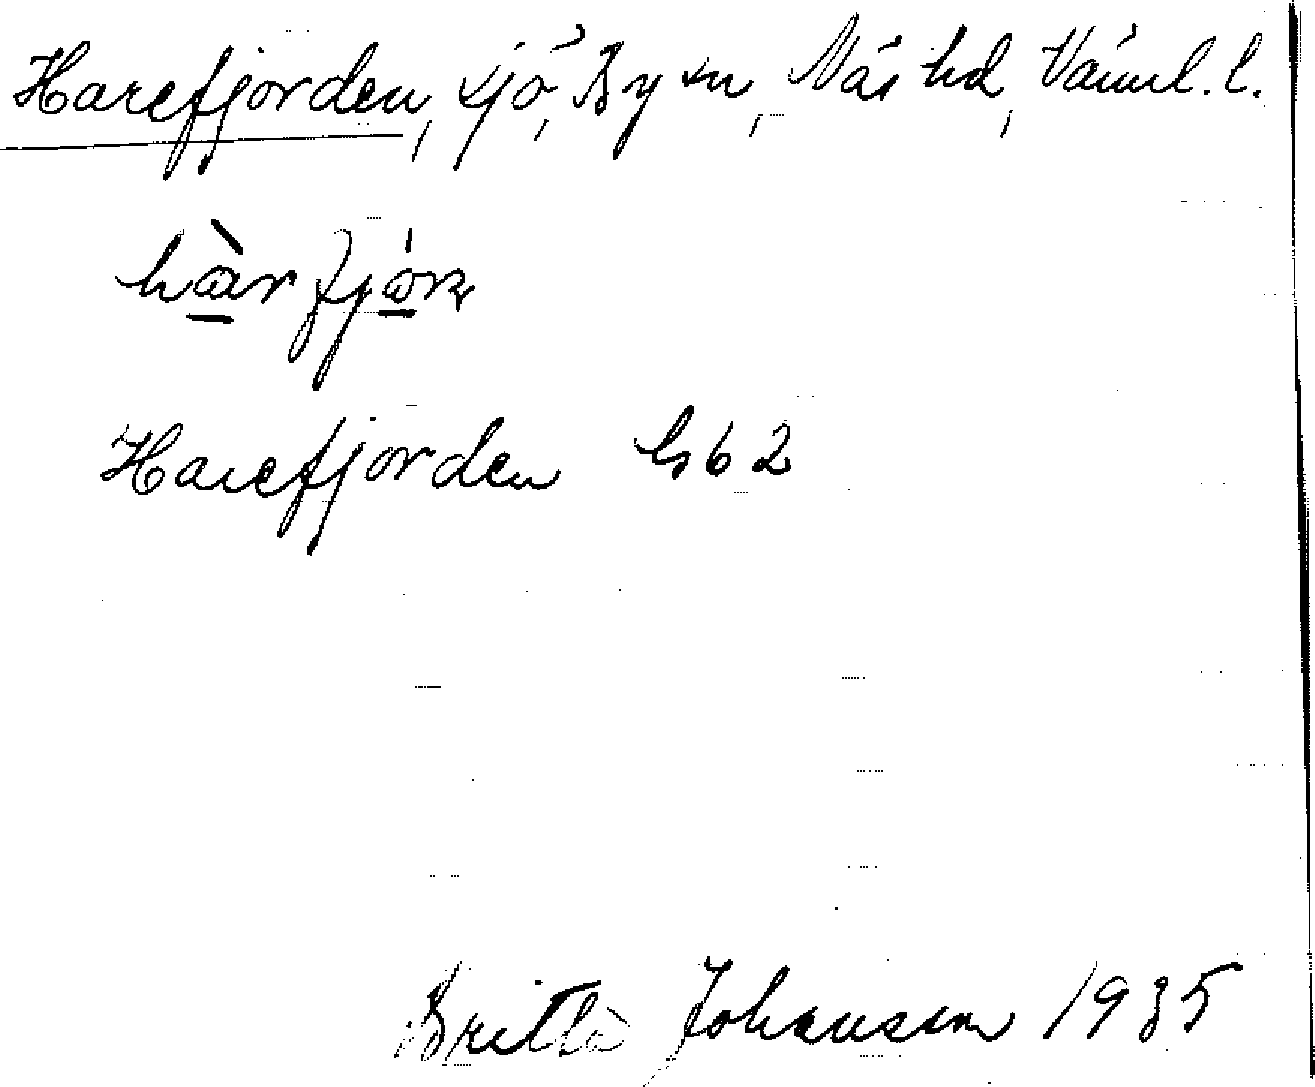 Harefjorden, sjö, By sn, Näs hd, Värml. l.
hàrfjór
Harefjorden G62
Britta Johansson 1935